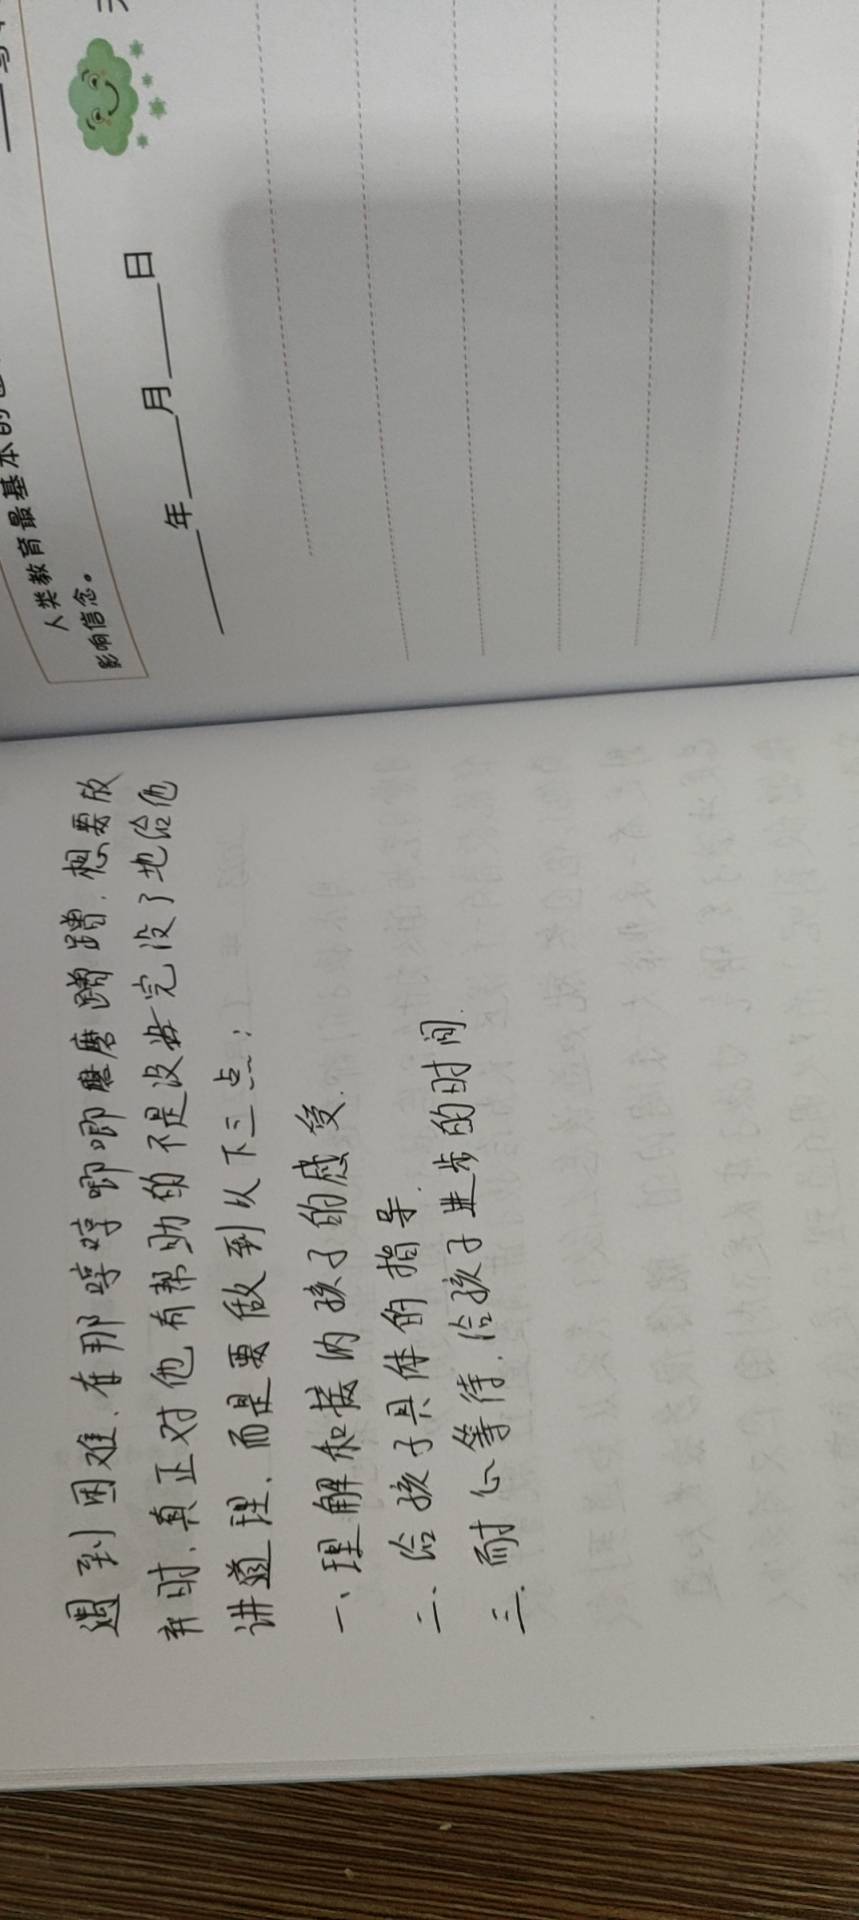 遇到困难、在那哼哼唧唧磨磨蹭蹭，想要放
弃时，真正对他有帮助的不是没完没了地给他
讲道理，而是要做到以下三点：
一、理解和接纳孩子的感受.
二、给孩子具体的指导.
三、耐心等待，给孩子进步的时间.
人类教育最基本的
影响信念。
____年____月____日